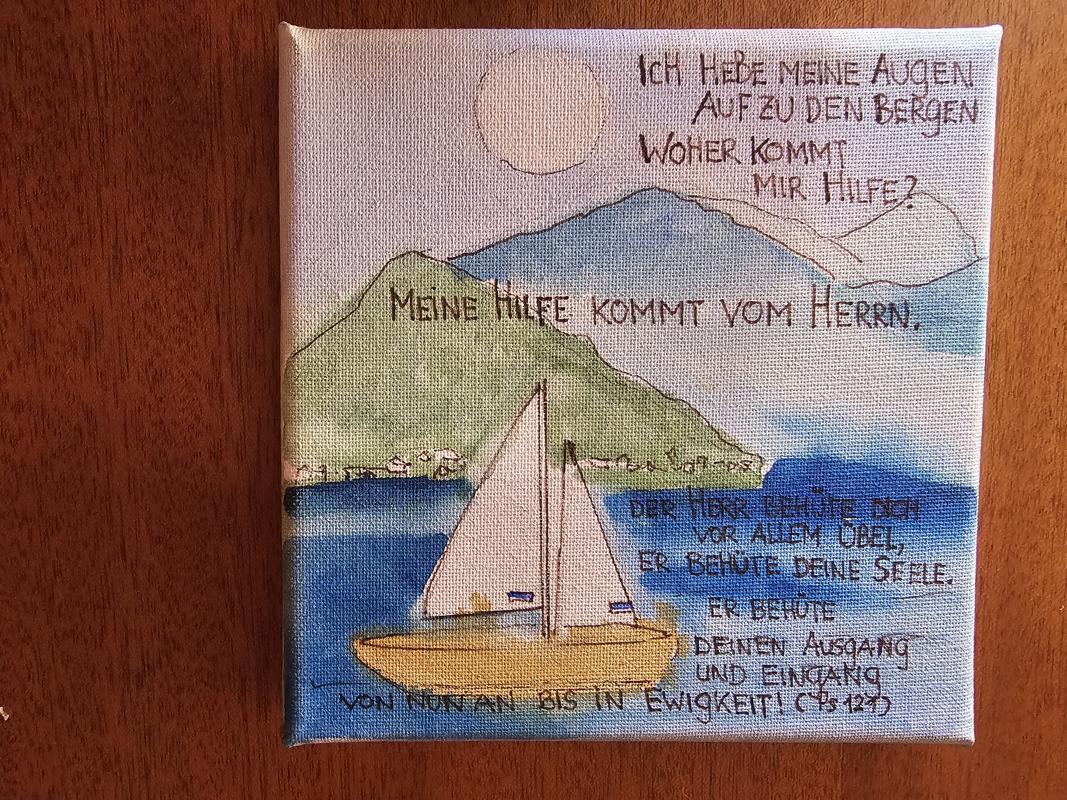 ICH HEBE MEINE AUGEN
AUF ZU DEN BERGEN
WOHER KOMMT
MIR HILFE?
MEINE HILFE KOMMT VOM HERRN.
DER HERR BEHÜTE DICH
VOR ALLEM ÜBEL,
ER BEHÜTE DEINE SEELE.
ER BEHÜTE
DEINEN AUSGANG
UND EINGANG
VON NUN AN BIS IN EWIGKEIT! (Ps 121)